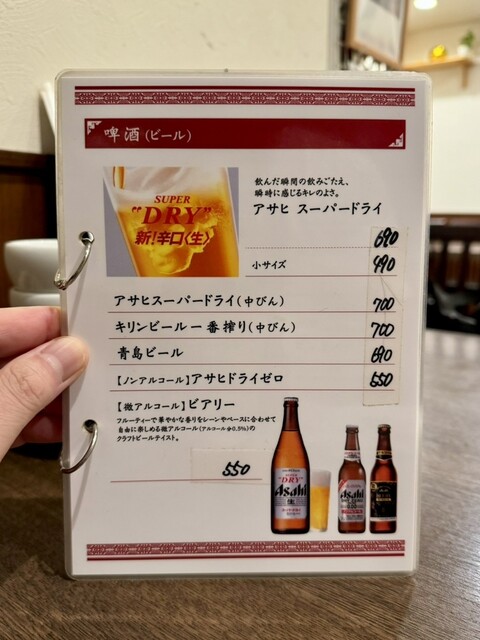 啤酒(ビール)
SUPER
"DRY"
新!辛口〈生〉
飲んだ瞬間の飲みごたえ、
瞬時に感じるキレのよさ。
アサヒ スーパードライ
690
小サイズ 490
アサヒスーパードライ(中びん) 700
キリンビール一番搾り(中びん) 700
青島ビール 690
【ノンアルコール】アサヒドライゼロ 550
【微アルコール】ビアリー
フルーティーで華やかな香りをレーンやベースに合わせて
自由に楽しめる微アルコール(アルコール分0.5%)の
クラフトビールテイスト。
550
SUPER
"DRY"
Asahi
生
Asahi